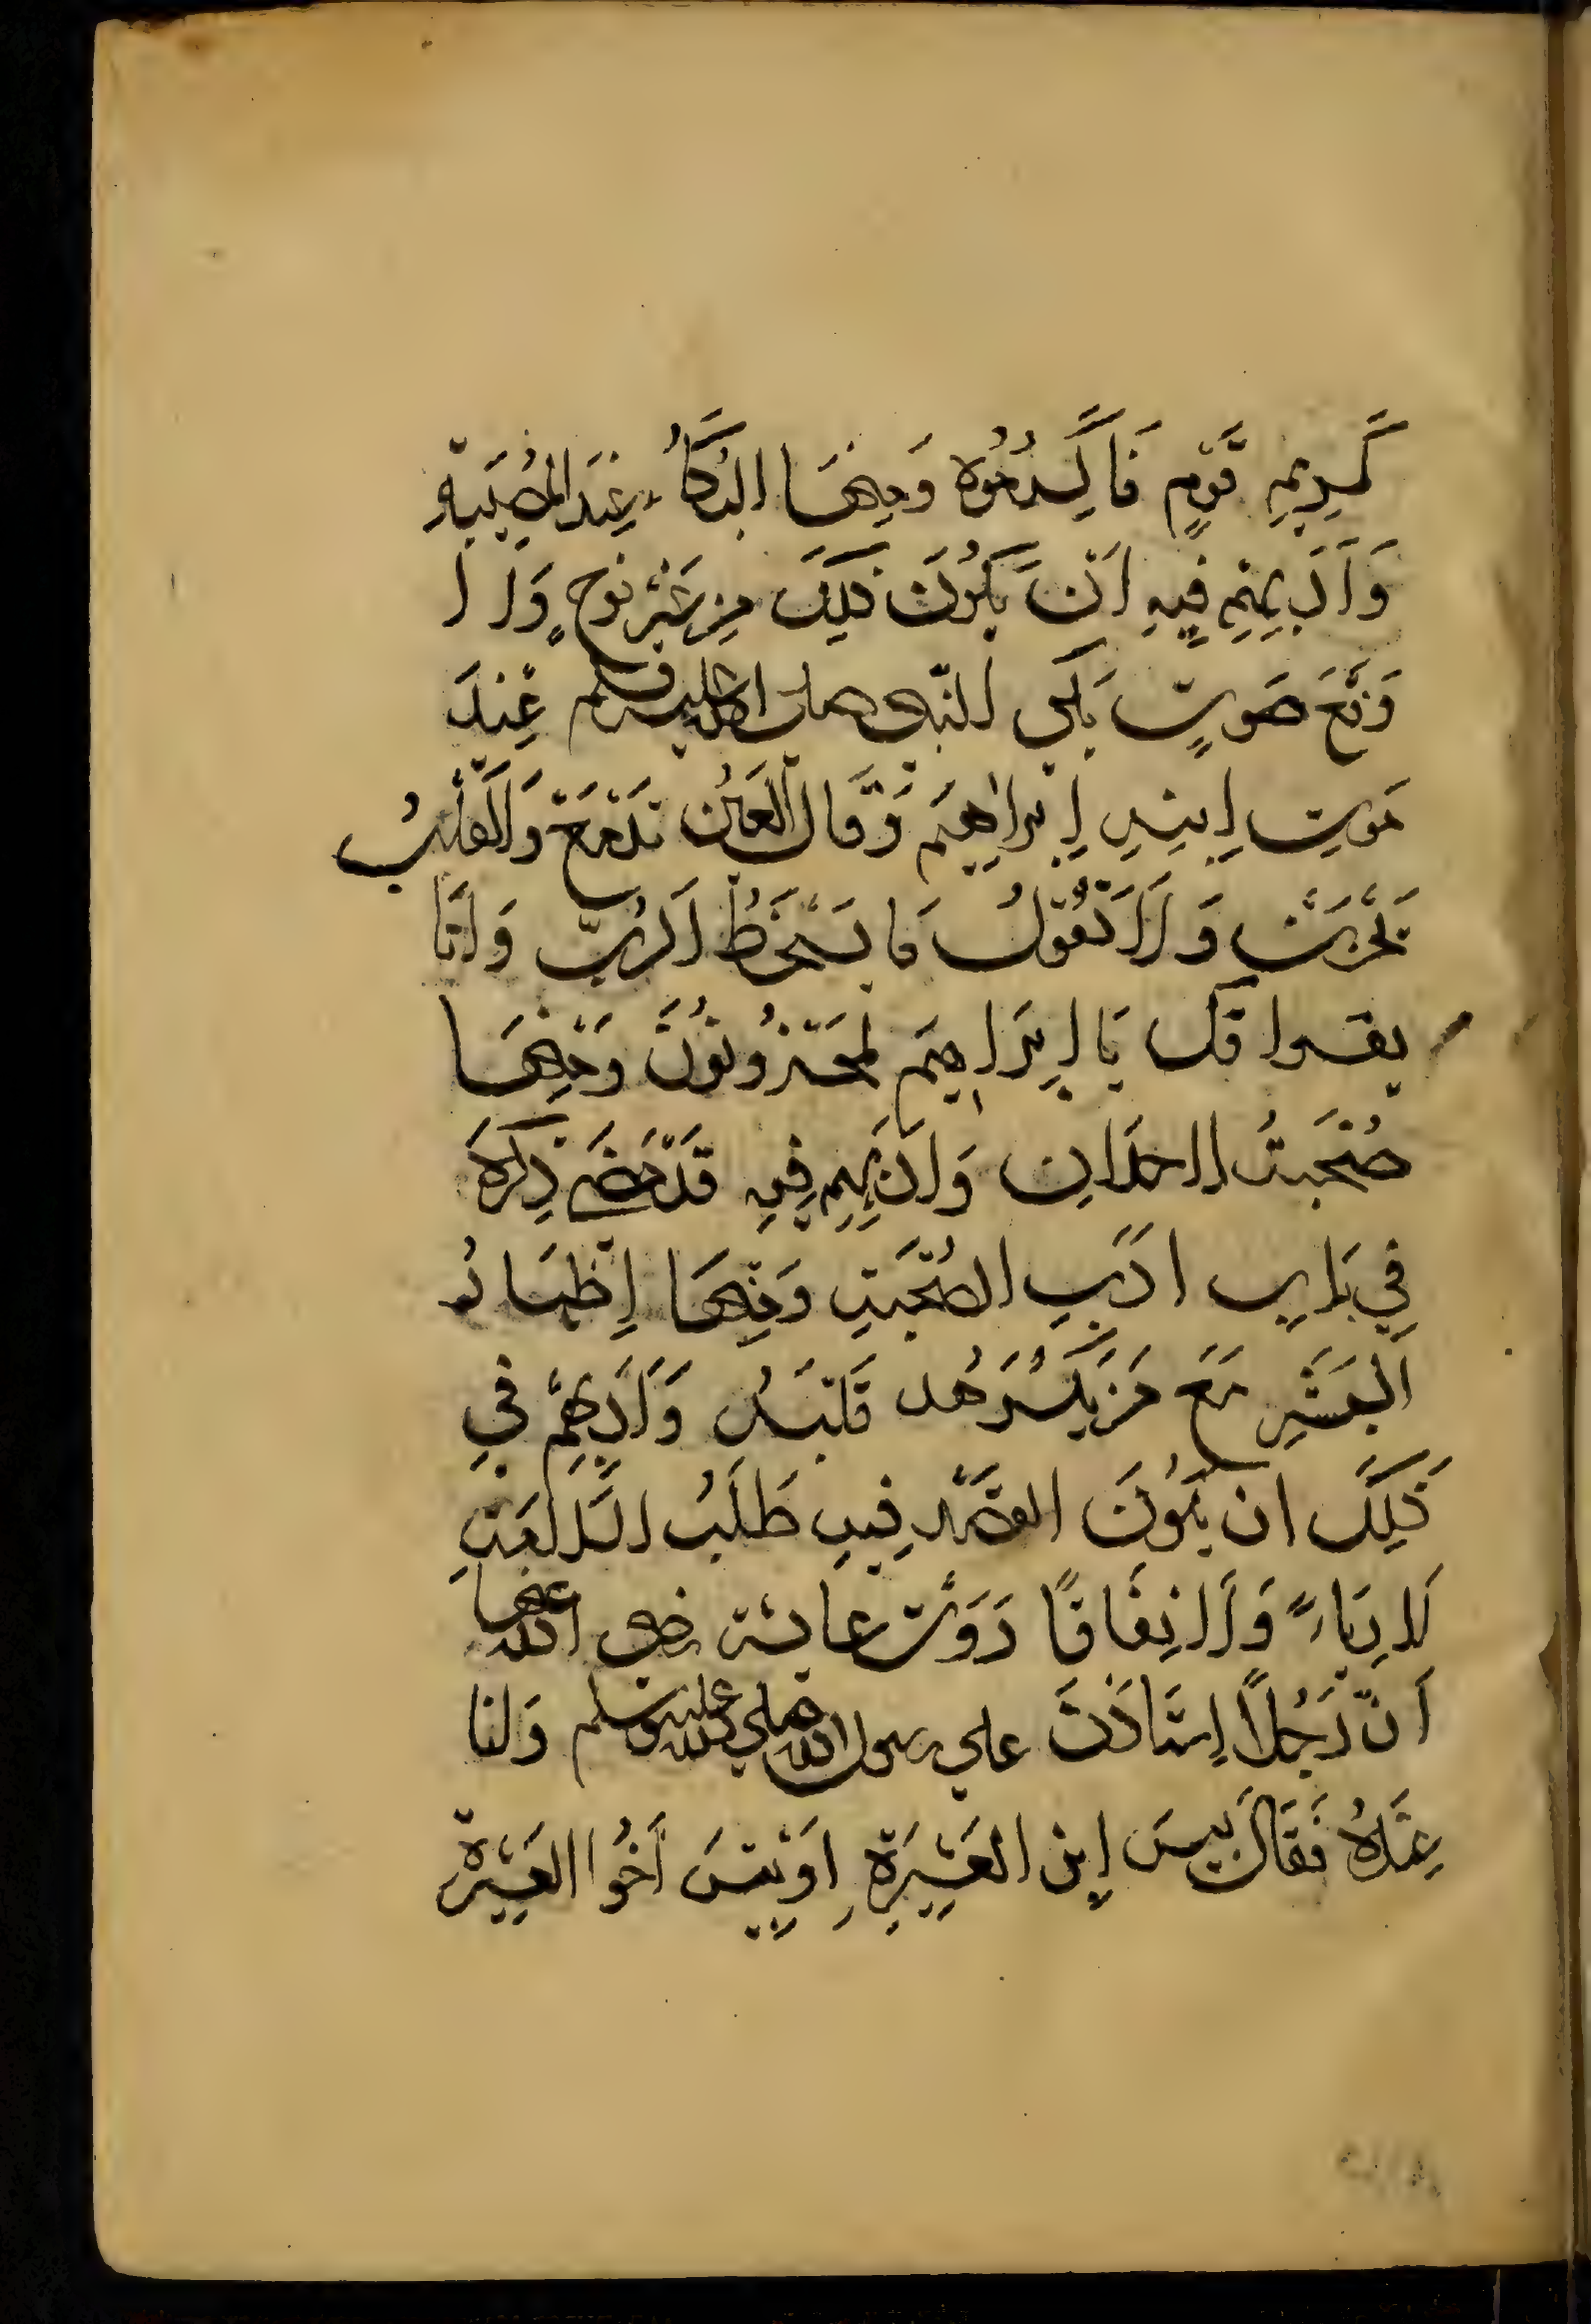 كَرِيمِ قَوْمٍ فَاَكْرِمُوْهُ وَمِنْهَا البُكَاُ عِنْدَ المُصِيْبَةِ
وَاَدَبِهِمْ فِيهِ اَنْ يَكُوْنَ ذَلِكَ مِنْ غَيْرِ نَوْحٍ وَلَا
رَفْعَ صَوْتٍ بَكَى النَّبِي صلى الله عليه وسلم عِنْدَ
مَوتِ اِبنِهِ اِبْرَاهِيْمَ وَقَالَ العَيْن تَدْمَعْ وَالْقَلْبُ
يَحْزَنْ وَلَا نَقُوْلُ مَا يَسْخَطُ الرَّبّ وَاِنَّا
بفراقك يَا اِبْرَاهِيم لمَحْزُونُوْنَ وَمِنْهَا
صُحْبَتُ الاحدَاث وَاَدَبِهِم فِيهِ قَدْ مَضَى ذِكْرهُ
فِي بَابِ ادَبِ الصُحْبَتِ وَمِنْهَا اِظْهَارُ
البَشَرِ مَعَ مَنْ يَكْرَهُه قَلْبَهُ وَاَدَبِهِمْ فِي
ذَلِكَ ان يَكُوْنَ القَصْد فِيهِ طَلَبُ السَّلَامَتِ
لَا رِيَاءً وَلَا نِفَاقًا رَوَتْ عايشة رضى الله عنها
اَنَّ رَجُلاً اِسْتَاذَنَ علي رسول الله صلى الله عليه وسلم وَانا
عِنْدَهُ فَقَالَ بِيسَ اِبن العَشِيْرَةِ اَوْ بِيْسَ اَخُوا العَشِيْرَة